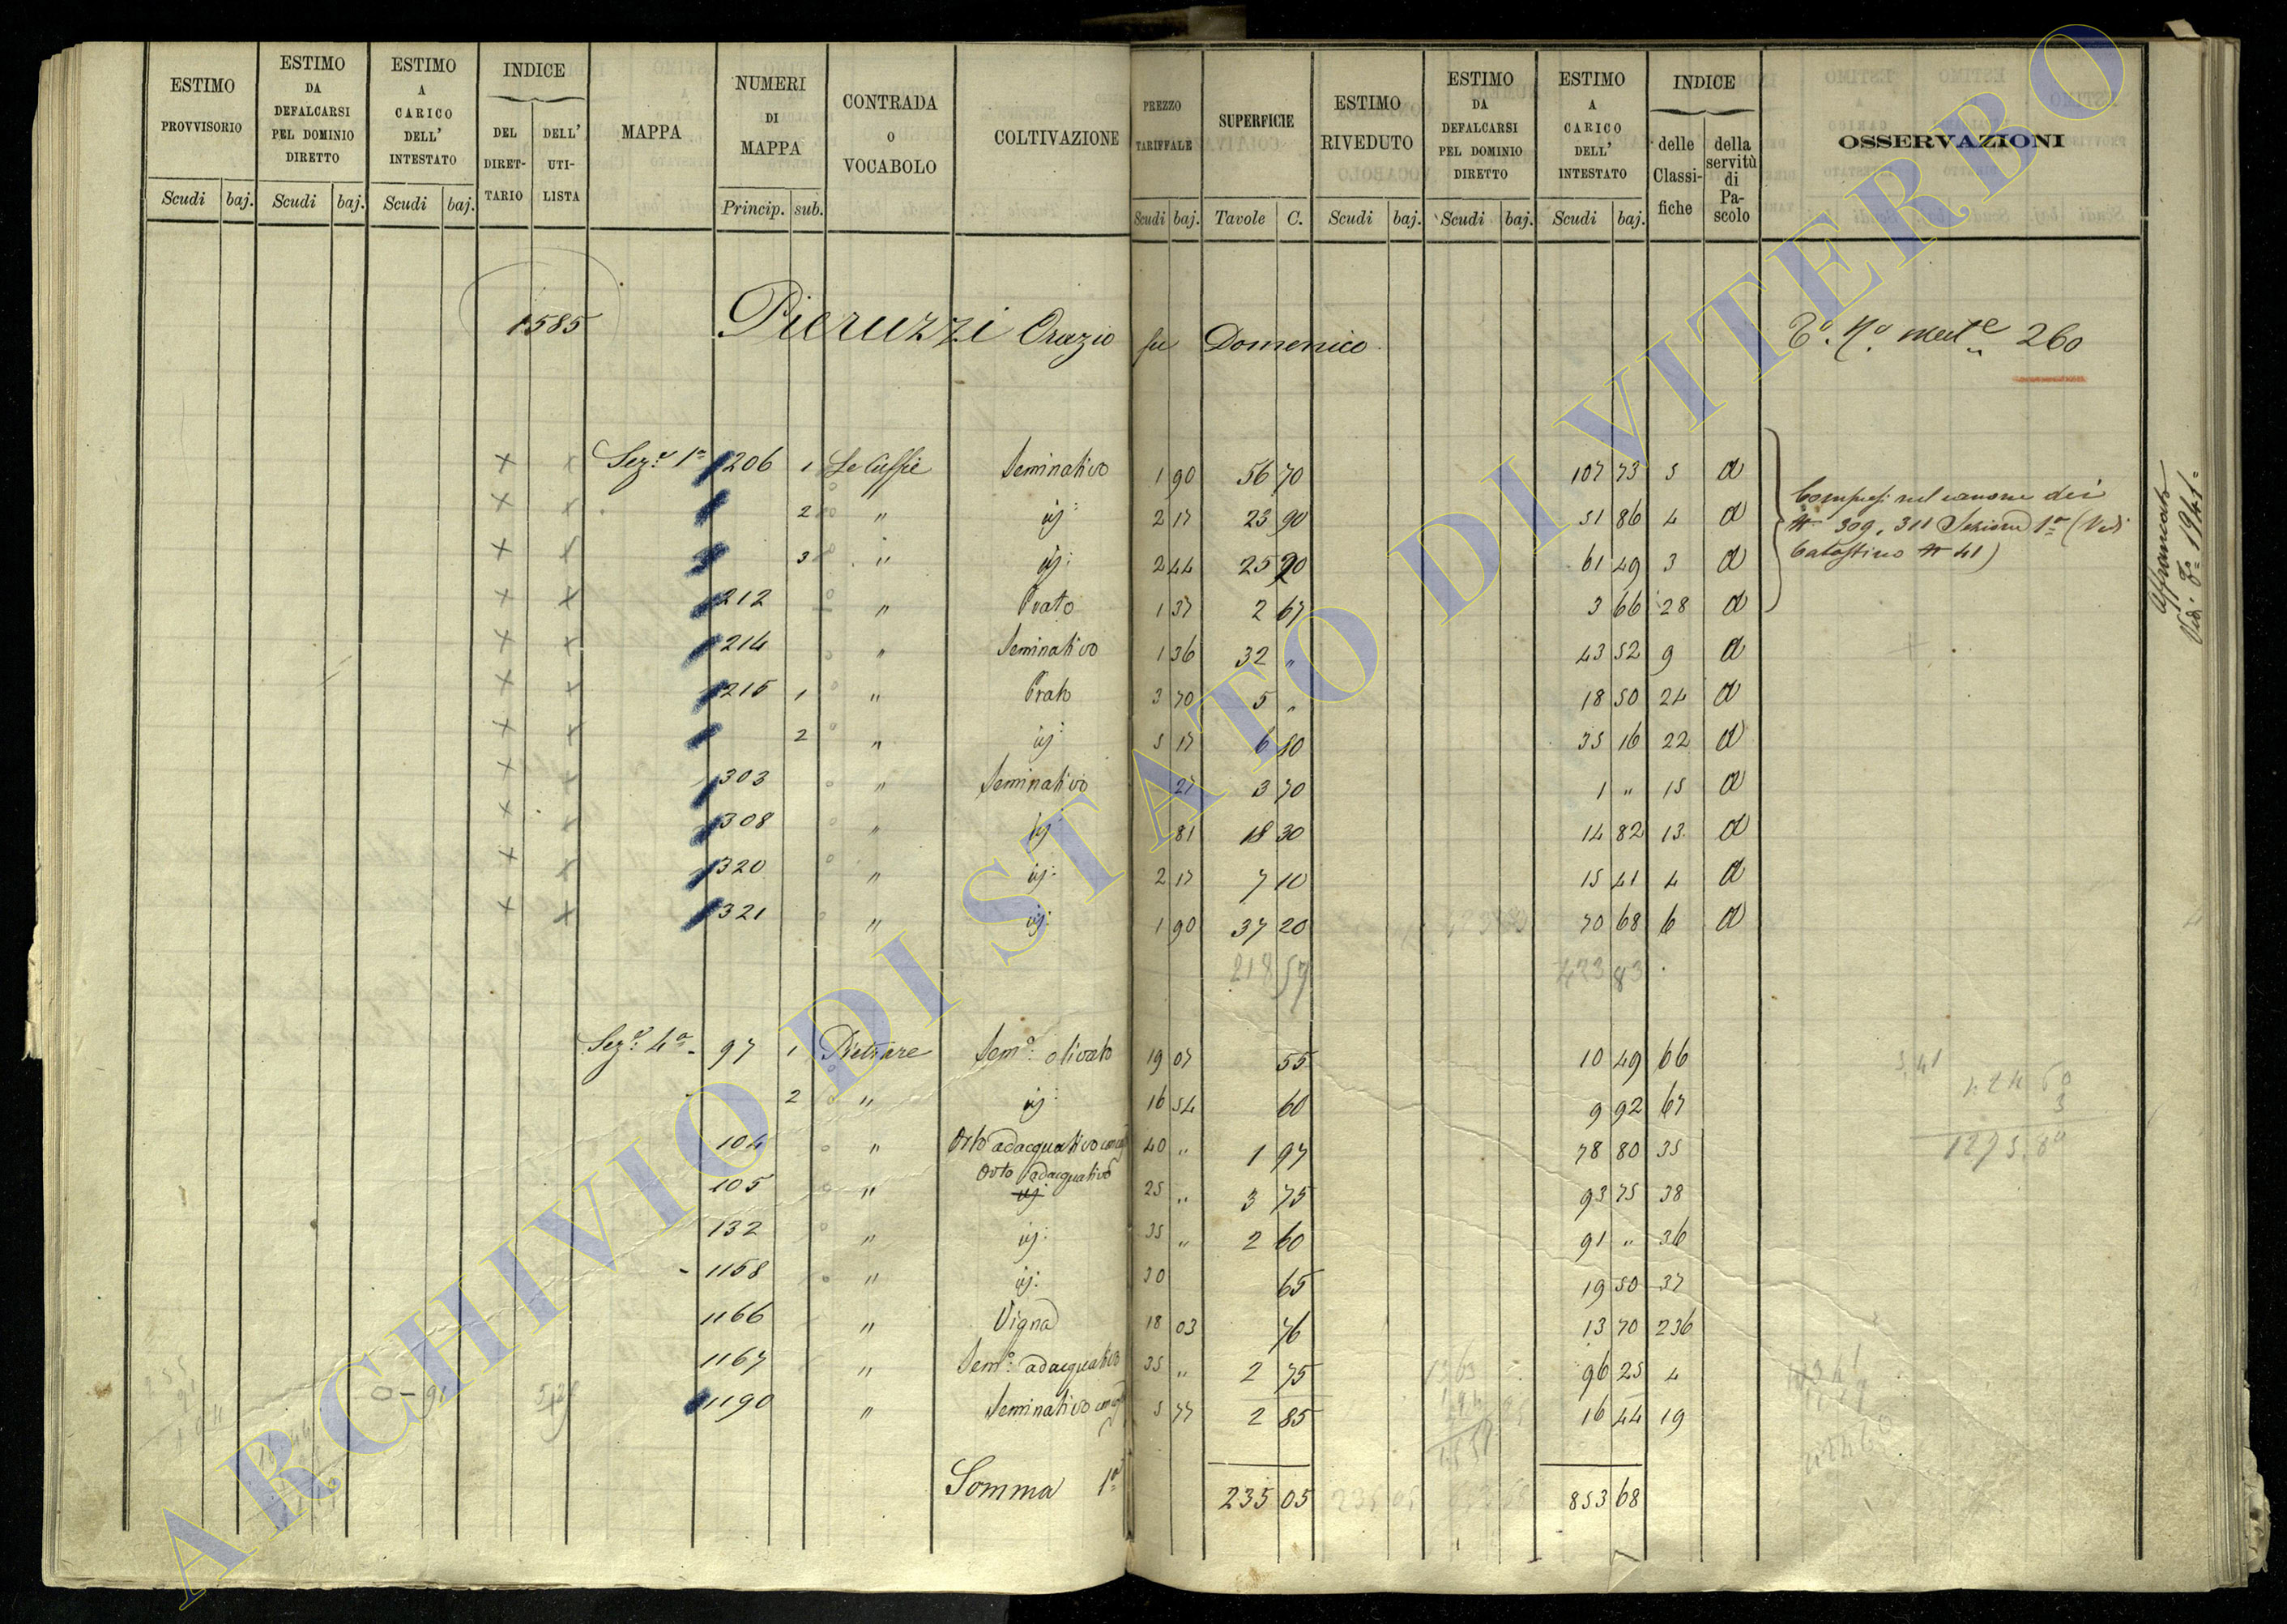 ESTIMO PROVVISORIO | ESTIMO DA DEFALCARSI PEL DOMINIO DIRETTO | ESTIMO A CARICO DELL' INTESTATO | INDICE DEL DIRETTARIO | DELL' UTILISTA | MAPPA | NUMERI DI MAPPA | CONTRADA O VOCABOLO | COLTIVAZIONE | PREZZO TARIFFALE | SUPERFICIE | ESTIMO RIVEDUTO | ESTIMO DA DEFALCARSI PEL DOMINIO DIRETTO | ESTIMO A CARICO DELL' INTESTATO | INDICE delle Classifiche | della servitù di Pascolo | OSSERVAZIONI
Scudi baj. Scudi baj. Scudi baj. Princip. sub. Scudi baj. Tavole C. Scudi baj. Scudi baj. Scudi baj.
1585 Pieruzzi Orazio fu Domenico
260
Sez.e 1a 206 1 Le Cuffie Seminativo 1 90 56 70 107 73 5 a
2 " ij: 2 17 23 90 51 86 4 a
3 " ij: 2 44 25 20 61 49 3 a
212 " Prato 1 37 2 67 3 66 28 a
214 " Seminativo 1 36 32 " 43 52 9 a
215 1 " Prato 3 70 5 " 18 50 24 a
2 " ij: 5 17 6 80 35 16 22 a
303 " Seminativo 27 3 70 1 " 15 a
308 " ij: 81 18 30 14 82 13 a
320 " ij: 2 17 7 10 15 41 4 a
321 " ij: 1 90 37 20 70 68 6 a
218 57 423 83
Compresi nel canone dei
N 309, 311 Sezione 1a (Vedi
Catastino N 41)
Affrancato
Vedi F. 1941
Sez.e 4a 97 1 Pietrare Sem.o olivato 19 07 55 10 49 66
2 " ij: 16 54 60 9 92 67
104 " Orto adacquativo 40 " 1 97 78 80 35
105 " Orto adacquativo ij: 25 " 3 75 93 75 38
132 " ij: 35 " 2 60 91 " 36
1158 " ij: 30 65 19 50 37
1166 " Vigna 18 03 76 13 70 236
1167 " Sem.o adacquativo 35 " 2 75 96 25 4
1190 " Seminativo 5 77 2 85 16 44 19
Somma 1a 235 05 235 05 853 68
ARCHIVIO DI STATO DI VITERBO